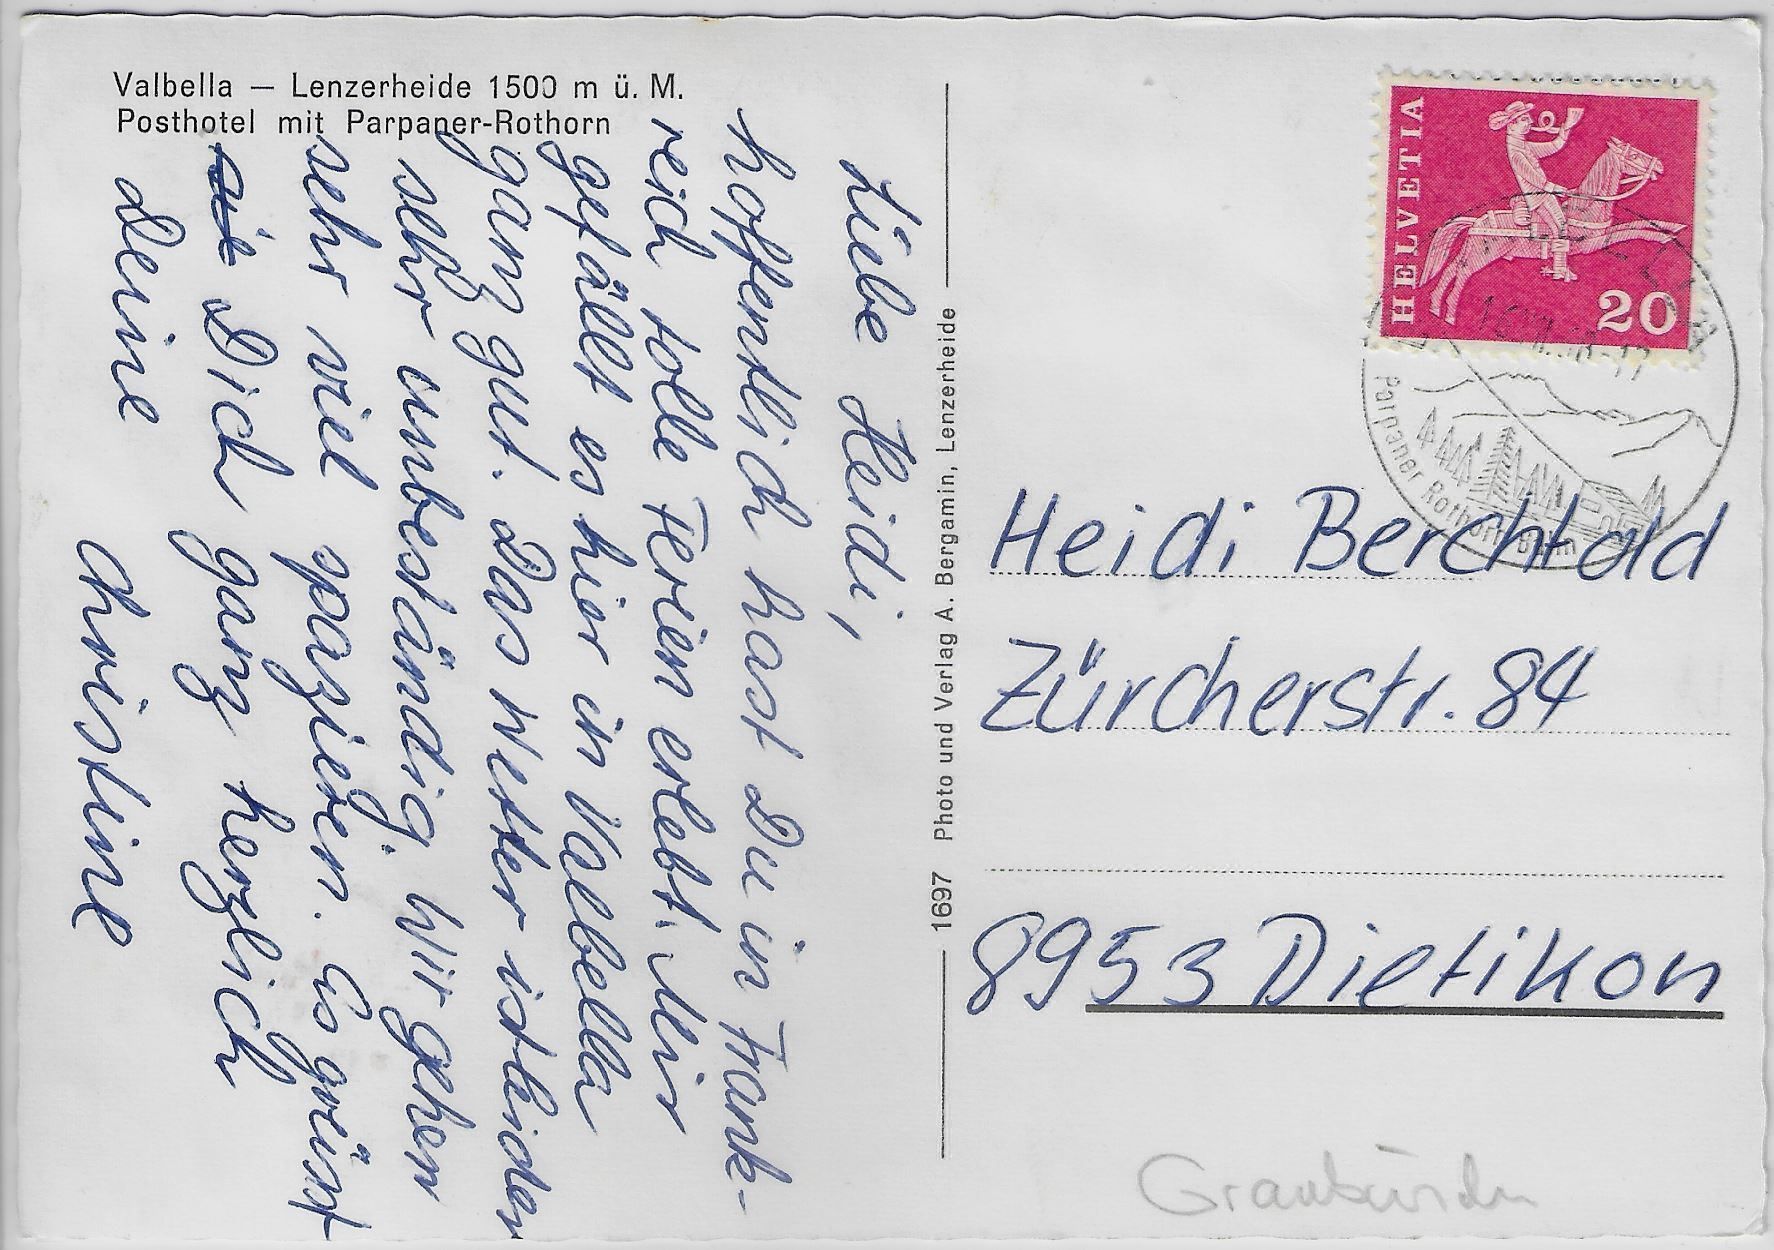 Valbella — Lenzerheide 1500 m ü. M.
Posthotel mit Parpaner-Rothorn
Liebe Heidi,
hoffentlich hast Du in Frank-
reich tolle Ferien erlebt. Mir
gefällt es hier in Valbella
ganz gut. Das Wetter ist leider
sehr unbeständig. Wir gehen
sehr viel spazieren. Es grüsst
Dich ganz herzlich
Deine Christine
1697 Photo und Verlag A. Bergamin, Lenzerheide
HELVETIA
20
Parpaner Rothorn-Bahn
Heidi Berchtold
Zürcherstr. 84
8953 Dietikon
Graubünden